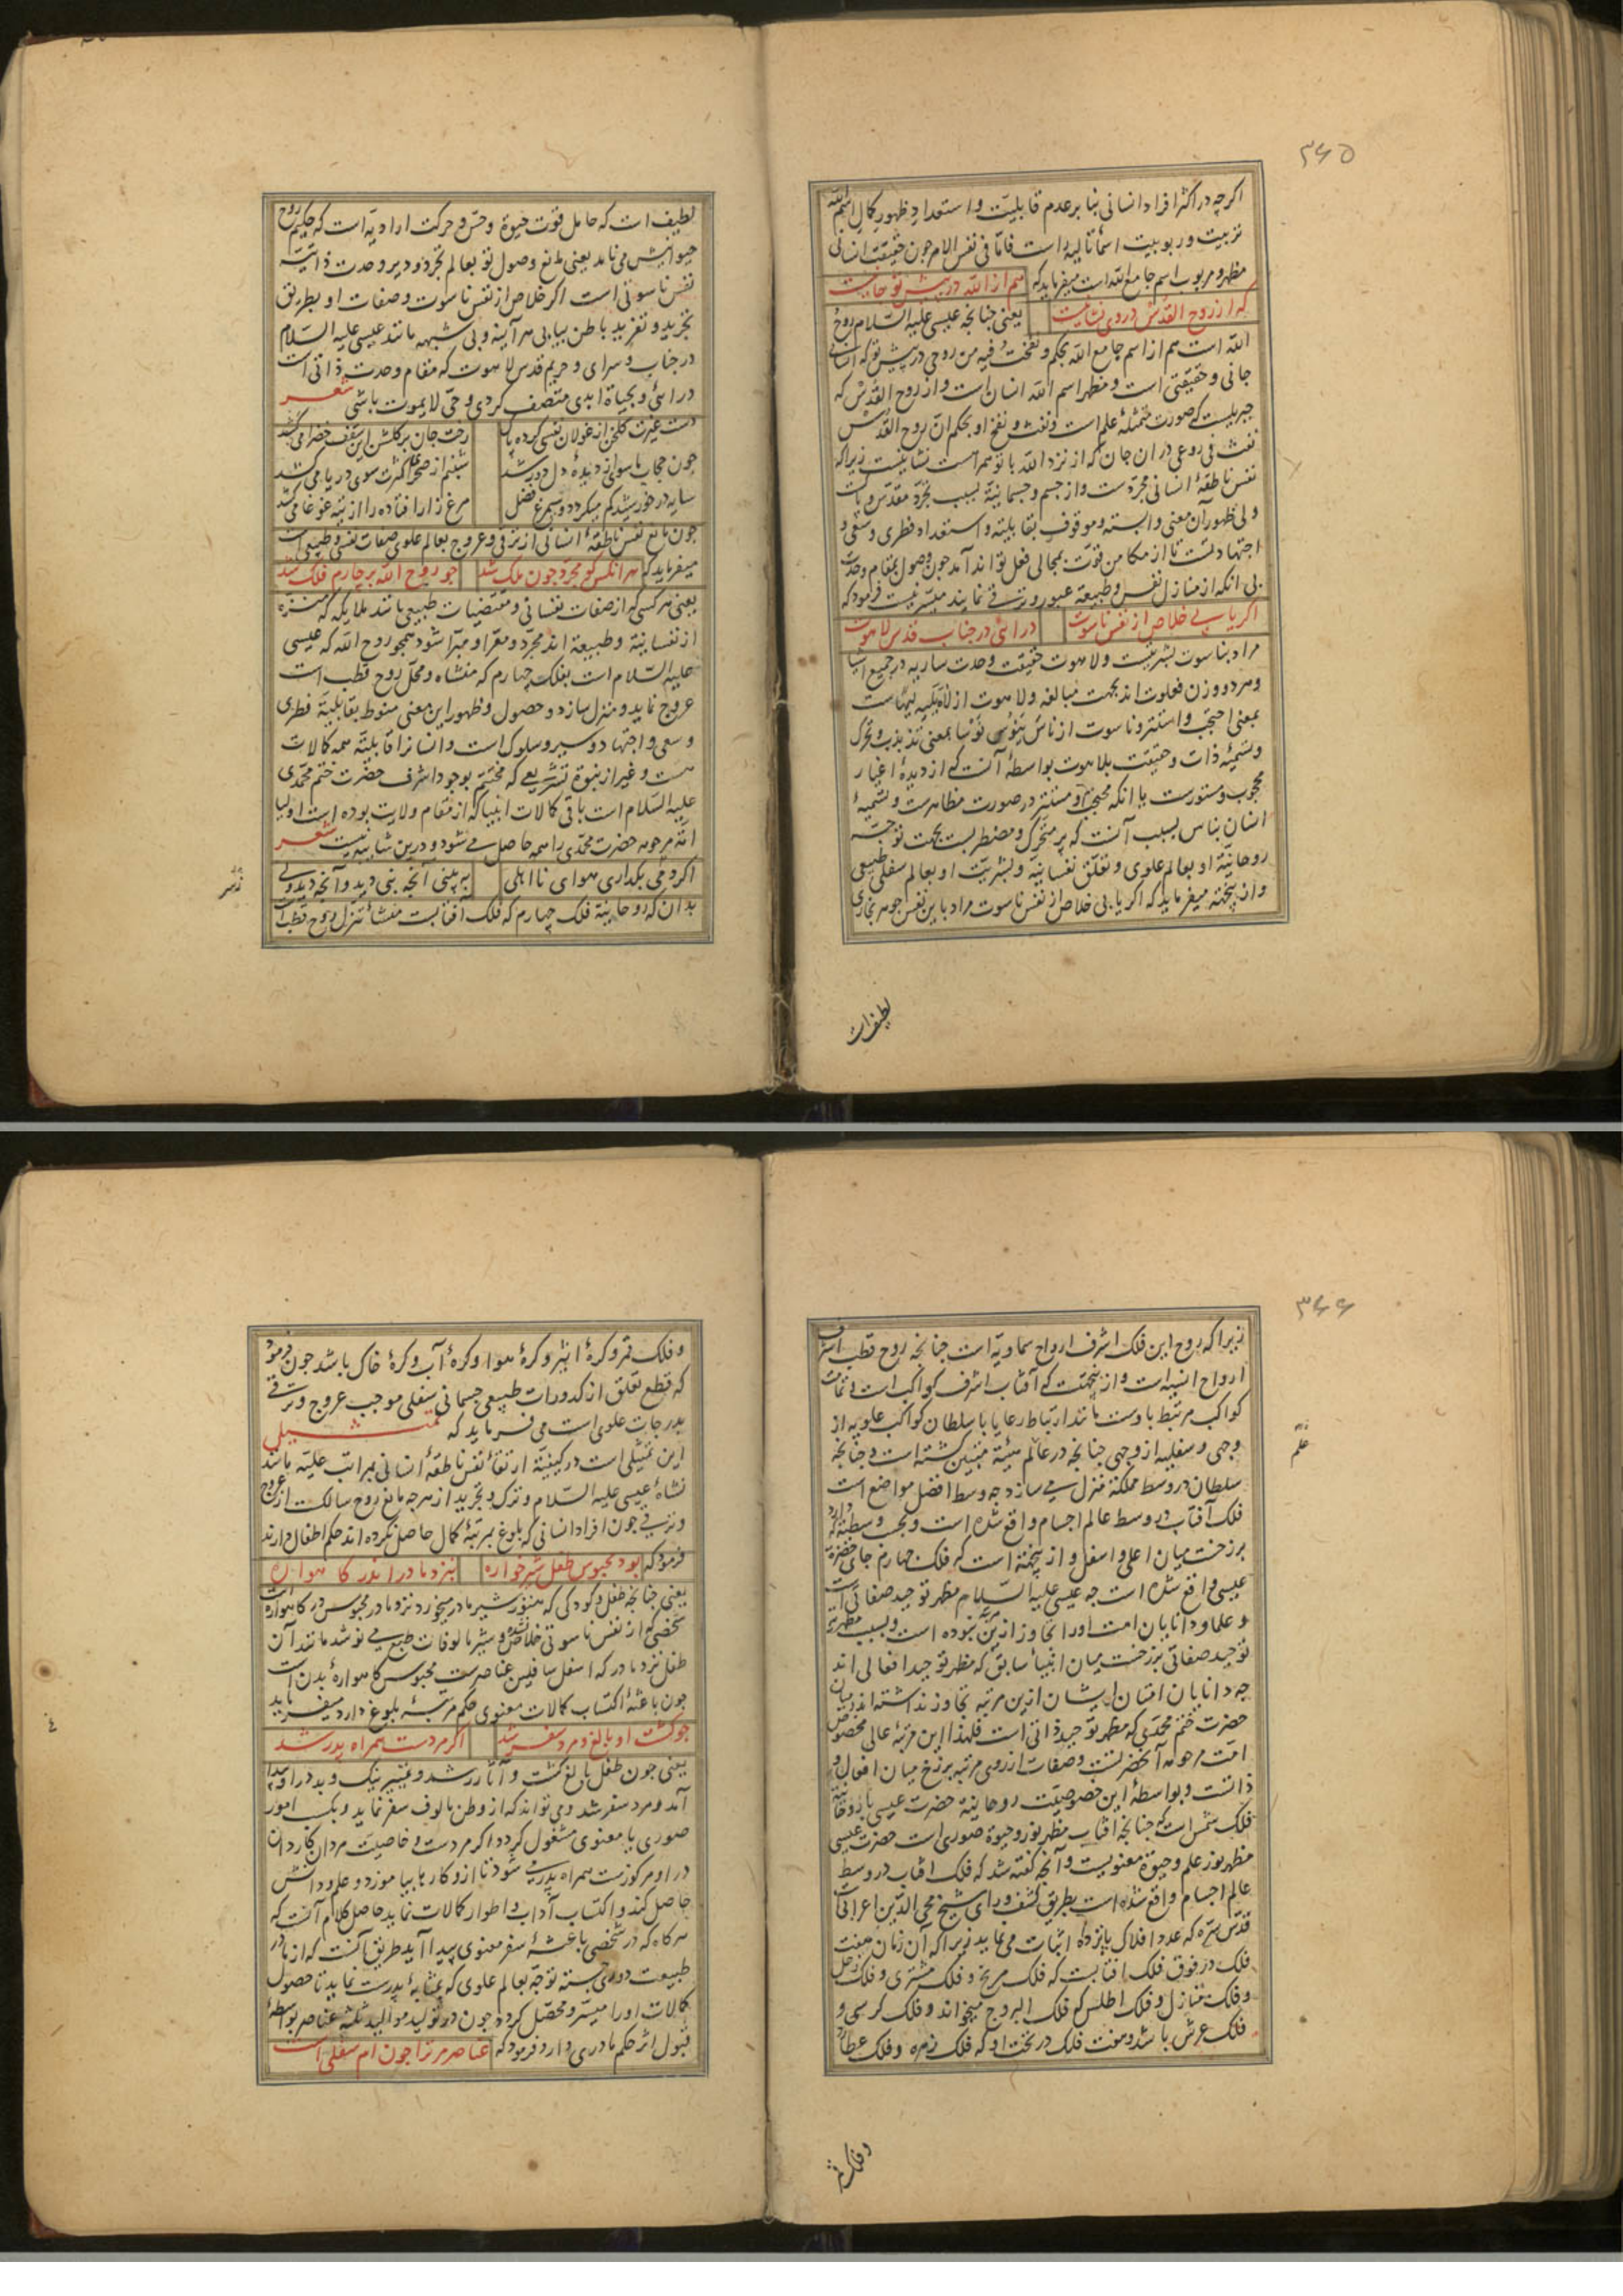 ۳۶۵
اگرچه در اکثر افراد انسانی بنا بر عدم قابلیت و استعداد ظهور کمال اسم الله
تربیت و ربوبیت اسما تالیه راست فاما فی نفس الامر چون حقیقت انسانی
مظهر و مربوب اسم جامع الله است میفرماید که هم از الله در پیش تو جانیست
که از روح القدس در وی نشانیست یعنی چنانچه عیسی علیه السلام روح
الله است هم از اسم جامع الله بحکم و نفخت فیه من روحی در پیش تو که انسانی
جانی و حقیقتی است و مظهر اسم الله انسان است و از روح القدس که
جبریلست که صورت متمثله علم است و نفث و نفخ او بحکم ان روح القدس
نفث فی روعی در ان جان که از نزد الله با تو همراست نشانیست زیرا که
نفس ناطقه انسانی مجردست و از جسم و جسمانیة بسبب تجرد مقدس و پاکست
ولی ظهور آن معنی وابسته و موقوف بقابلیة و استعداد فطری و سعی و
اجتهادست تا از مکامن قوت بمجالی فعل تواند آمد چون وصول بمقام وحدت
بی انکه از منازل نفس و طبیعة عبور و ترقی نمایند میسر نیست فرمود که
اگر یابی خلاص از نفس ناسوت در آئی در جناب قدس لاهوت
مراد بناسوت بشریتست و لاهوت حقیقت وحدت ساریه در جمیع اشیا
و هر دو وزن فعلوت اند بجهت مبالغه و لاهوت از لاه یلیه لیها ست
بمعنی احتجب و استتر و ناسوت از ناس ینوس نوسا بمعنی تذبذب و تحرک
و تسمیه ذات و حقیقت بلاهوت بواسطه آنست که از دیده اغیار
محجوب و مستورست یا انکه محتجب و مستتر در صورت مظاهرست و تسمیه
انسان بناس بسبب آنست که پر متحرک و مضطربست بجهت توجه
روحانیة او بعالم علوی و تعلق نفسانیة و بشریت او بعالم سفلی طبیعی
و از ینجهته میفرماید که اگر یابی خلاص از نفس ناسوت مراد باین نفس جوهر بخاری
لطیف است
لطیف است که حامل قوت حیوة و حس و حرکت ارادیه است که حکیم روح
حیوانیش می نامد یعنی مانع وصول تو بعالم تجرد و دیر وحدت ذاتیه
نفس ناسوتی است اگر خلاص از نفس ناسوت و صفات او بطریق
تجرید و تفرید باطن بیابی هر آینه و بی شبهه مانند عیسی علیه السلام
در جناب و سرای و حریم قدس لاهوت که مقام وحدت ذاتی است
در آئی و بحیاة ابدی متصف گردی و حی لایموت باشی شعر
دست غیرت گلخن از غولان نفسی کرده پاک رخت جان بر گلشن این سقف خضرا می کشد
چون حجاب ماسوا از دیده دل دور شد شبنم از صحرای کثرت سوی دریا می کشد
سایه در خورشید کم میگردد و سیمرغ فضل مرغ زار افتاده را از تیه غوغا می کشد
چون مانع نفس ناطقه انسانی از ترقی و عروج بعالم علوی صفات نفسی و طبیعی است
میفرماید که هر انکس کو مجرد چون ملک شد چو روح الله بر چارم فلک شد
یعنی هر کسی که از صفات نفسانی و مقتضیات طبیعی مانند ملایکه که منزه
از نفسانیة و طبیعة اند مجرد و معرا و مبرا شود همچو روح الله که عیسی
علیه السلام است بفلک چهارم که منشاء و محل روح قطب است
عروج نماید و منزل سازد و حصول و ظهور این معنی منوط بقابلیة فطری
و سعی و اجتهاد و سیر و سلوک است و انسانرا قابلیة همه کمالات
هست و غیر از نبوة تشریعی که مختتم بوجود اشرف حضرت ختم محمدی
علیه السلام است باقی کمالات انبیا که از مقام ولایت بوده است اولیا
امة مرحومه حضرت محمدی را همه حاصل می شود و درین شائبه نیست شعر
اگر دمی بگذاری هوای نااهلی به بینی آنچه نبی دید و آنچه دید ولی
بدان که روحانیة فلک چهارم که فلک افتابست منشأ تنزل روح قطب است
۳۶۶
زیرا که روح این فلک اشرف ارواح سماویه است چنانچه روح قطب اشرف
ارواح انسیه است و از ینجهت که آفتاب اشرف کواکب است تمامت
کواکب مرتبط باوست مانند ارتباط رعایا با سلطان کواکب علویه از
وجهی و سفلیه از وجهی چنانچه در عالم هیئة مبین گشته است و چنانچه
سلطان در وسط مملکة منزل می سازد چه وسط افضل مواضع است
فلک آفتاب در وسط عالم اجسام واقع شده است و بحسب وسطیة که دارد
برزخست میان اعلی و اسفل و از ینجهة است که فلک چهارم جای حضرة
عیسی واقع شده است چه عیسی علیه السلام مظهر توحید صفاتی است
و علما و دانایان امت او را تجاوز ازین مرتبه نبوده است و بسبب مظهریة
توحید صفاتی برزخست میان انبیاء سابق که مظهر توحید افعالی اند
چه دانایان امتان ایشان ازین مرتبه تجاوز نداشته اند و میان
حضرت ختم محمدی که مظهر توحید ذاتی است فلهذا این مرتبه عالی مخصوص
امت مرحومه آنحضرتست و صفات از روی مرتبه برزخ میان افعال و
ذاتست و بواسطه این خصوصیت روحانیة حضرت عیسی با روحانیة
فلک شمس است که چنانچه افتاب مظهر نور و حیوة صوری است حضرت عیسی
مظهر نور علم و حیوة معنویست و آنچه گفته شد که فلک افتاب در وسط
عالم اجسام واقع شده است بطریق کشف و رای شیخ محی الدین اعرابیست
قدس سره که عدد افلاک پانزده اثبات می نماید زیرا که آن زمان هفت
فلک در فوق فلک افتابست که فلک مریخ و فلک مشتری و فلک زحل
و فلک منازل و فلک اطلس که فلک البروج میخواند و فلک کرسی و
فلک عرش باشد و هفت فلک در تحت او که فلک زهره و فلک عطارد
و فلک قمر
و فلک قمر و کره اثیر و کره هوا و کره آب و کره خاک باشد چون فرمود
که قطع تعلق از کدورات طبیعی جسمانی سفلی موجب عروج و ترقی
بدرجات علوی است می فرماید که تمثیل
این تمثیلی است در کیفیة ارتقاء نفس ناطقه انسانی بمراتب علیه مانند
نشاه عیسی علیه السلام و ترک و تجرید از هرچه مانع روح سالک از عروج
و ترقی چون افراد انسانی که بلوغ بمرتبه کمال حاصل نکرده اند حکم اطفال دارند
فرمود که بود محبوس طفل شیرخواره بنزد مادر اندر گاهواره
یعنی چنانچه طفل و کودکی که هنوز شیر مادر میخورد نزد مادر محبوس در گاهواره است
شخصی که از نفس ناسوتی خلاص نشده و شیر مالوفات طبع می نوشد مانند آن
طفل نزد مادر که اسفل سافلین عناصرست محبوس گاهواره بدن است
چون باعثه اکتساب کمالات معنوی حکم مرتبه بلوغ دارد میفرماید
چو گشت او بالغ و مرد سفر شد اگر مردست همراه پدر شد
یعنی چون طفل بالغ گشت و آثار رشد و تمییز نیک و بد در او پیدا
آمد و مرد سفر شد و می تواند که از وطن مالوف سفر نماید و بکسب امور
صوری یا معنوی مشغول گردد اگر مردست و خاصیت مردان کاردان
در او مرکوزست همراه پدر می شود تا ازو کارها بیاموزد و علم و دانش
حاصل کند و اکتساب آداب و اطوار کمالات نماید حاصل کلام آنست که
هرگاه که در شخصی باعثه سفر معنوی پیدا آید طریق آنست که از مادر
طبیعت دوری جسته توجه بعالم علوی که بمثابه پدرست نماید تا حصول
کمالات او را میسر و محصل گردد چون در تولید موالید ثلثه عناصر بواسطه
قبول اثر حکم مادری دارد فرمود که عناصر مر ترا چون ام سفلی است